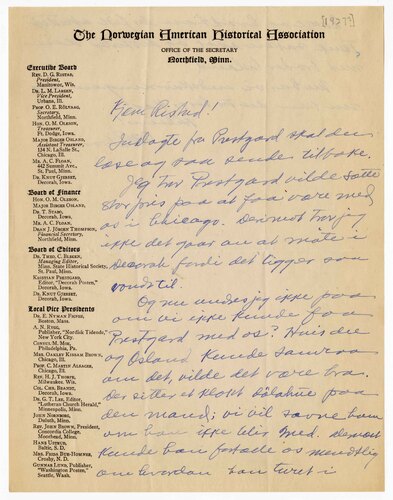 [1927?]
The Norwegian American Historical Association
OFFICE OF THE SECRETARY
Northfield, Minn.
Executive Board
REV. D. G. RISTAD,
President,
Manitowoc, Wis.
DR. L. M. LARSEN,
Vice President,
Urbana, Ill.
PROF. O. E. RÖLVAAG,
Secretary,
Northfield, Minn.
HON. O. M. OLESON,
Treasurer,
Ft. Dodge, Iowa.
MAJOR BIRGER OSLAND,
Assistant Treasurer,
134 N. LaSalle St.,
Chicago, Ill.
MR. A. C. FLOAN,
442 Summit Ave.,
St. Paul, Minn.
DR. KNUT GJERSET,
Decorah, Iowa.
Board of Finance
HON. O. M. OLESON,
MAJOR BIRGER OSLAND,
DR. T. STABO,
Decorah, Iowa.
MR. A. C. FLOAN,
DEAN J. JÖRGEN THOMPSON,
Financial Secretary,
Northfield, Minn.
Board of Editors
DR. THEO. C. BLEGEN,
Managing Editor,
Minn. State Historical Society,
St. Paul, Minn.
KRISTIAN PRESTGARD,
Editor, "Decorah Posten,"
Decorah, Iowa.
DR. KNUT GJERSET,
Decorah, Iowa.
Local Vice Presidents
DR. E. NYMAN FIGVED,
Boston, Mass.
A. N. RYGG,
Publisher, "Nordisk Tidende,"
New York City.
CONSUL M. MOE,
Philadelphia, Pa.
MRS. OAKLEY KISSAM BROWN,
Chicago, Ill.
PROF. C. MARTIN ALSAGER,
Chicago, Ill.
REV. H. J. THORPE,
Milwaukee, Wis.
COL. CHR. BRANDT,
Decorah, Iowa.
DR. G. T. LEE, Editor,
"Lutheran Church Herald,"
Minneapolis, Minn.
JOHN NORBORG,
Duluth, Minn.
REV. JOHN BROWN, President,
Concordia College,
Moorhead, Minn.
HANS USTRUD,
Baltic, S. D.
MRS. FRIDA BUE-HOMNES,
Crosby, N. D.
GUNNAR LUND, Publisher,
"Washington Posten,"
Seattle, Wash.
Kjære Ristad!
Indlagte fra Prestgard skal du
læse og saa sende tilbake.
Jeg tror Prestgard vilde sætte
stor pris paa at faa være med
os i Chicago. Derimot tror jeg
ikke det gaar an at møte i
Decorah fordi det ligger saa
vondt til.
Og nu undres jeg ikke paa
om vi ikke kunde faa
Prestgard med os? Hvis du
og Osland kunde samraa
om det, vilde det være bra.
Der sitter et klokt
den mand; vi vil savne ham
om han ikke blir med. Dernæst
kunde han fortælle os mundtlig
om hvordan han turet i